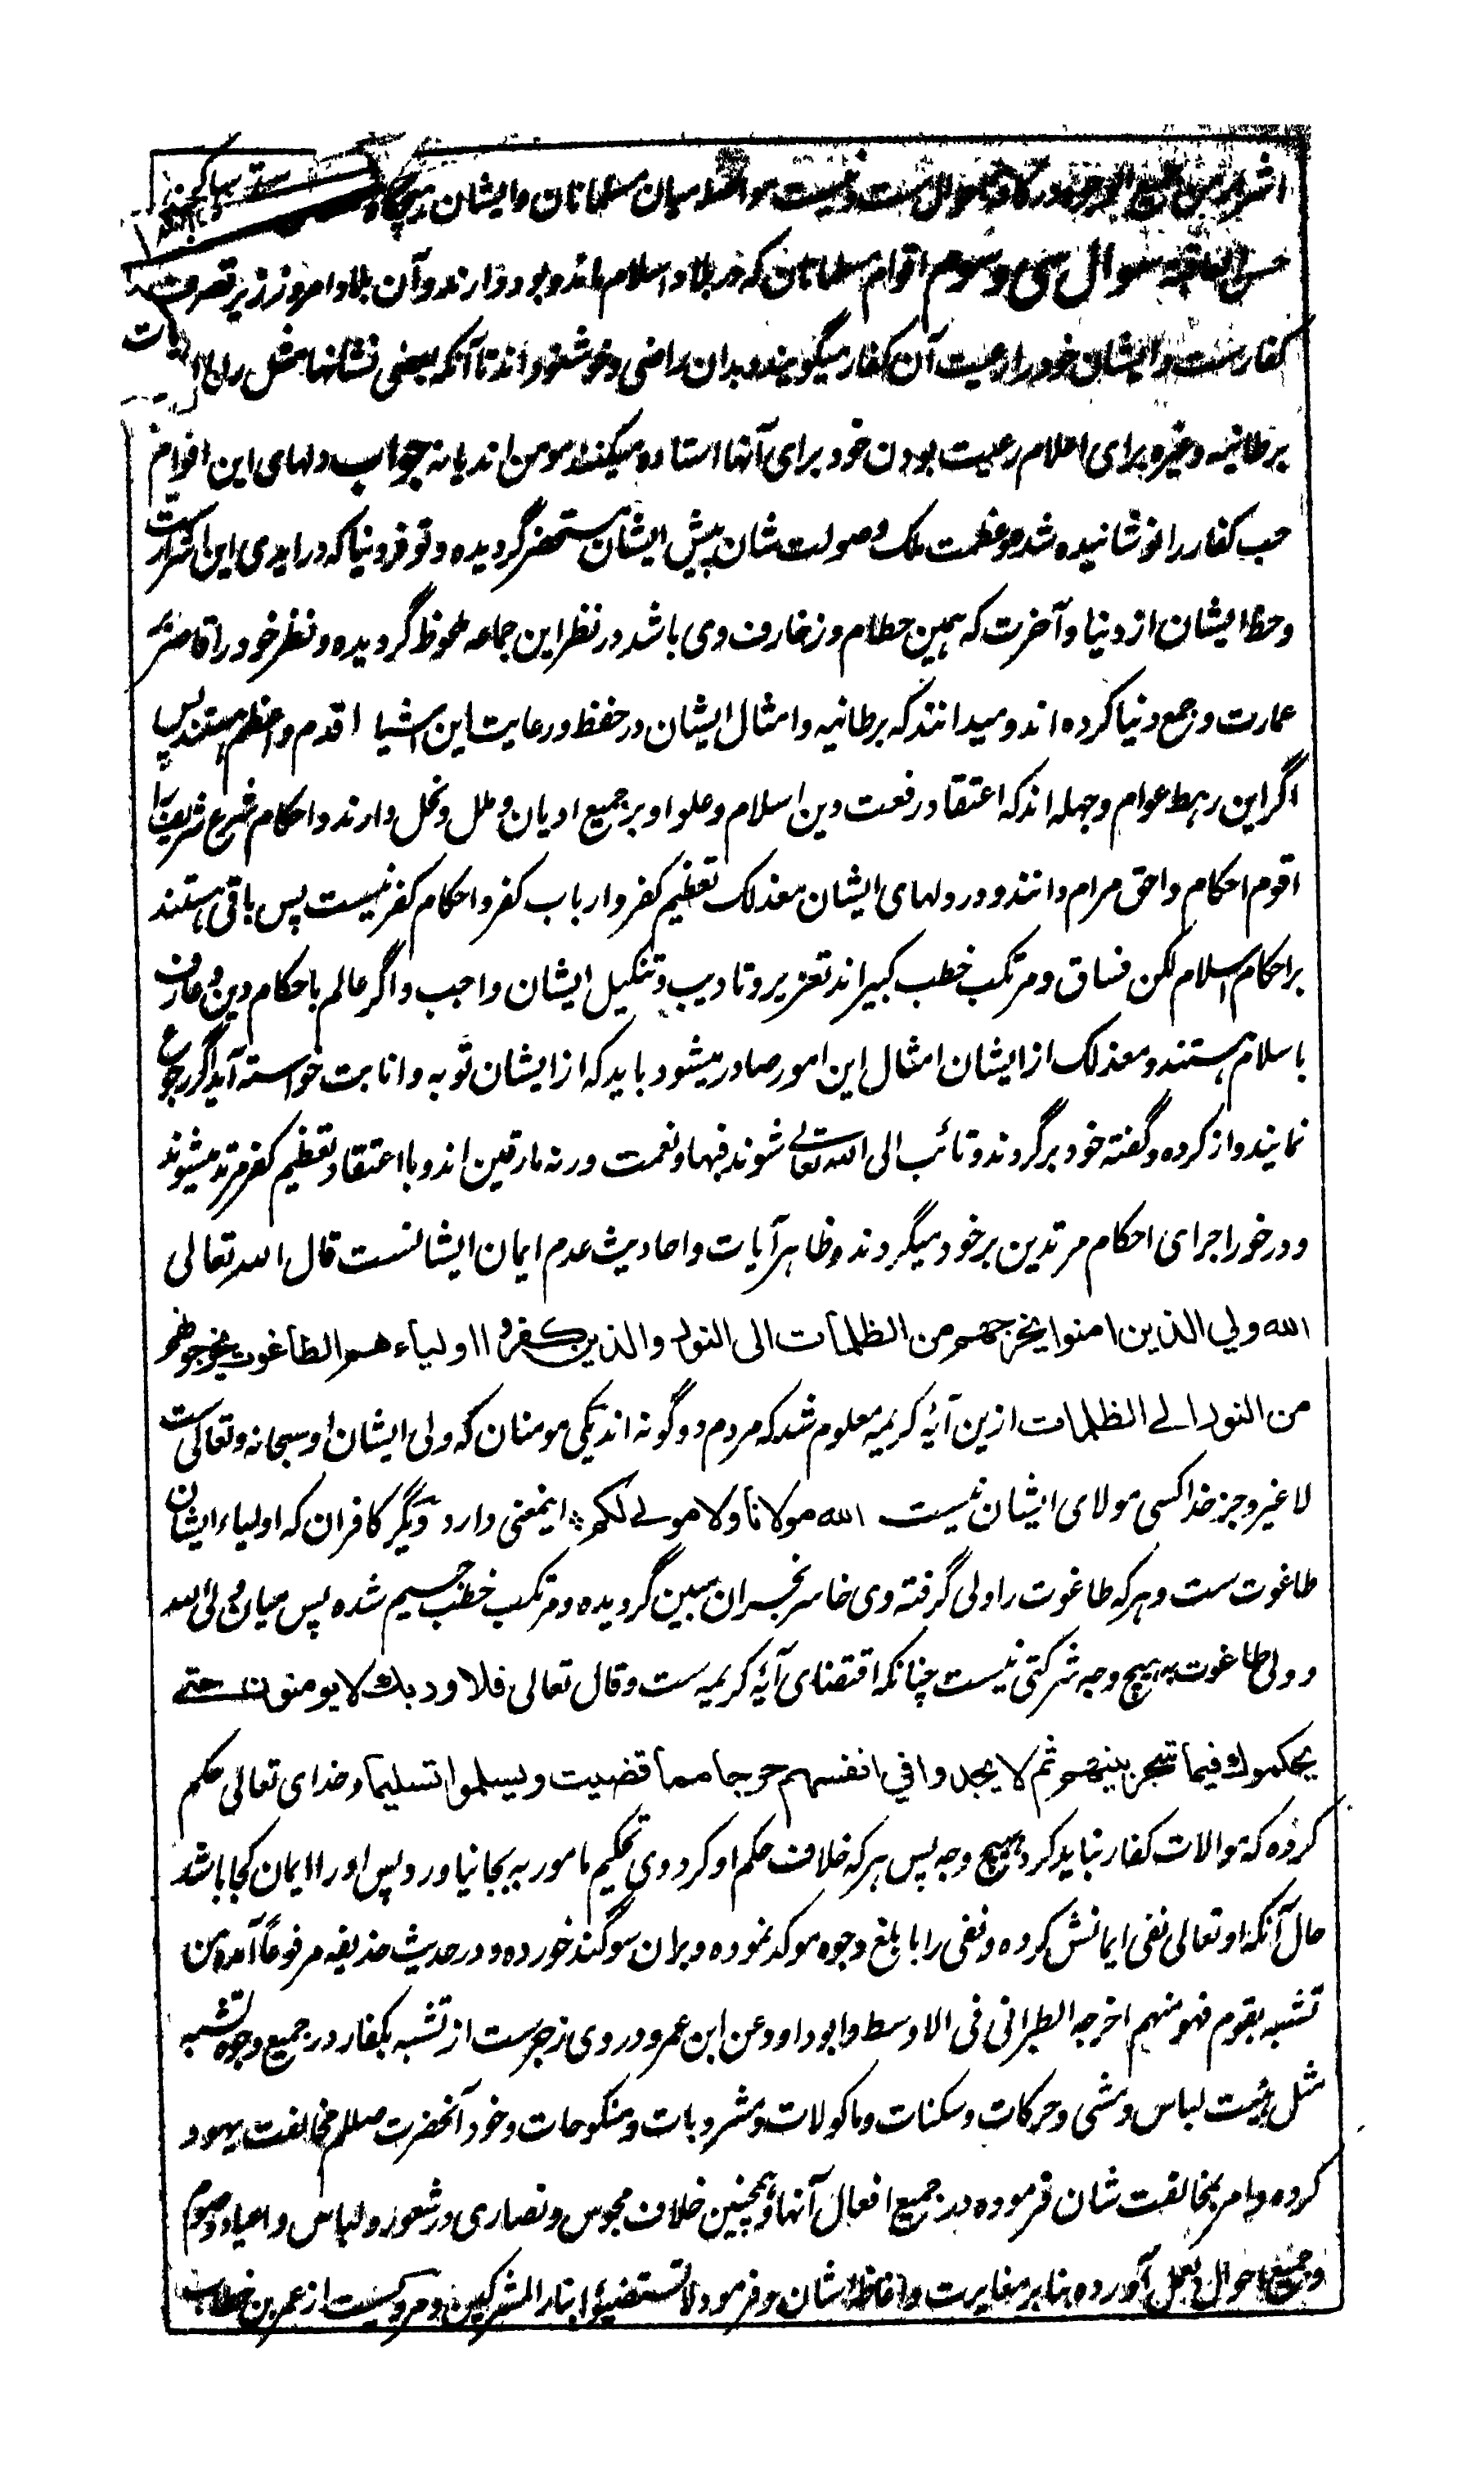 میان مسلمانان و ایشان
سوال سی و سوم اقوام مسلمانان که در بلاد اسلام اند و بود دارند و آن بلاد امروز زیر تصرف
کفارست و ایشان خود را رعیت آن کفار میگویند و بدان راضی و خوشنود اند تا آنکه بعضی نشانها مثل
برطانیه و غیره برای اعلام رعیت بودن خود برای آنها استاده میکنند مومن اند یا نه جواب دلهای این اقوام
حب کفار را نوشانیده شده و عظمت ملک و صولت شان پیش ایشان مستحضر گردیده و توفر دنیا که در ایدی این اشرارست
و حظ ایشان از دنیا و آخرت که همین حطام و زخارف وی باشد در نظر این جماعه ملحوظ گردیده و نظر خود را قاصر بر
عمارت و جمع دنیا کرده اند و میدانند که برطانیه و امثال ایشان در حفظ و رعایت این اشیا اقدم و اعظم هستند پس
اگر این رهط عوام و جهله اند که اعتقاد رفعت دین اسلام و علو او بر جمیع ادیان و ملل و نحل دارند و احکام شرع شریف را
اقوم احکام و احق مرام دانند و در دلهای ایشان معذلک تعظیم کفر و ارباب کفر و احکام کفر نیست پس باقی هستند
بر احکام اسلام لکن فساق و مرتکب خطب کبیر اند تعزیر و تادیب و تنکیل ایشان واجب و اگر عالم باحکام دین و عارف
باسلام هستند و معذلک از ایشان امثال این امور صادر میشود باید که از ایشان توبه و انابت خواسته آید اگر رجوع
نمایند و از کرده و گفته خود برگردند و تائب الی الله تعالی شوند فبها و نعمت ورنه مارقین اند و با اعتقاد تعظیم کفر مرتد میشوند
و در خور اجرای احکام مرتدین بر خود میگردند و ظاهر آیات و احادیث عدم ایمان ایشانست قال الله تعالی
الله ولي الذين امنوا يخرجهم من الظلمات الى النور والذين كفروا اولياءهم الطاغوت يخرجونهم
من النور الی الظلمات ازین آیۀ کریمه معلوم شد که مردم دو گونه اند یکی مومنان که ولی ایشان او سبحانه و تعالی ست
لا غیر و جز خدا کسی مولای ایشان نیست الله مولانا ولا مولى لكم اینمعنی دارد دیگر کافران که اولیاء ایشان
طاغوت ست و هر که طاغوت را ولی گرفته وی خاسر بخسران مبین گردیده و مرتکب خطب جسیم شده پس میان ولی الله
و ولی طاغوت بهیچ وجه شرکتی نیست چنانکه اقتضای آیۀ کریمه ست و قال تعالی فلا وربك لا يومنون حتے
يحكموك فيما شجر بينهم ثم لا يجدوا في انفسهم حرجا مما قضيت ويسلموا تسليما و خدای تعالی حکم
کرده که موالات کفار نباید کرد بهیچ وجه پس هر که خلاف حکم او کرد وی تحکیم مامور به بجا نیاورد پس او را ایمان کجا باشد
حال آنکه او تعالی نفی ایمانش کرده و نفی را بابلغ وجوه موکد نموده و بران سوگند خورده و در حدیث حذیفه مرفوعاً آمده من
تشبه بقوم فهو منهم اخرجه الطبرانی فی الاوسط و ابوداود عن ابن عمر و در وی زجرست از تشبه بکفار در جمیع وجوه تشبه
مثل هیئت لباس و مشی و حرکات و سکنات و ماکولات و مشروبات و منکوحات و خود آنحضرت صلعم مخالفت یهود
کرده و امر بمخالفت شان فرموده در جمیع افعال آنها و همچنین خلاف مجوس و نصاری در شعور و لباس و اعیاد و صوم
و جمیع احوال بعمل آورده بنا بر مغایرت و اغاظۀ ایشان و فرموده لا تستضیؤا بنار المشرکین و مرویست از عمر بن خطاب